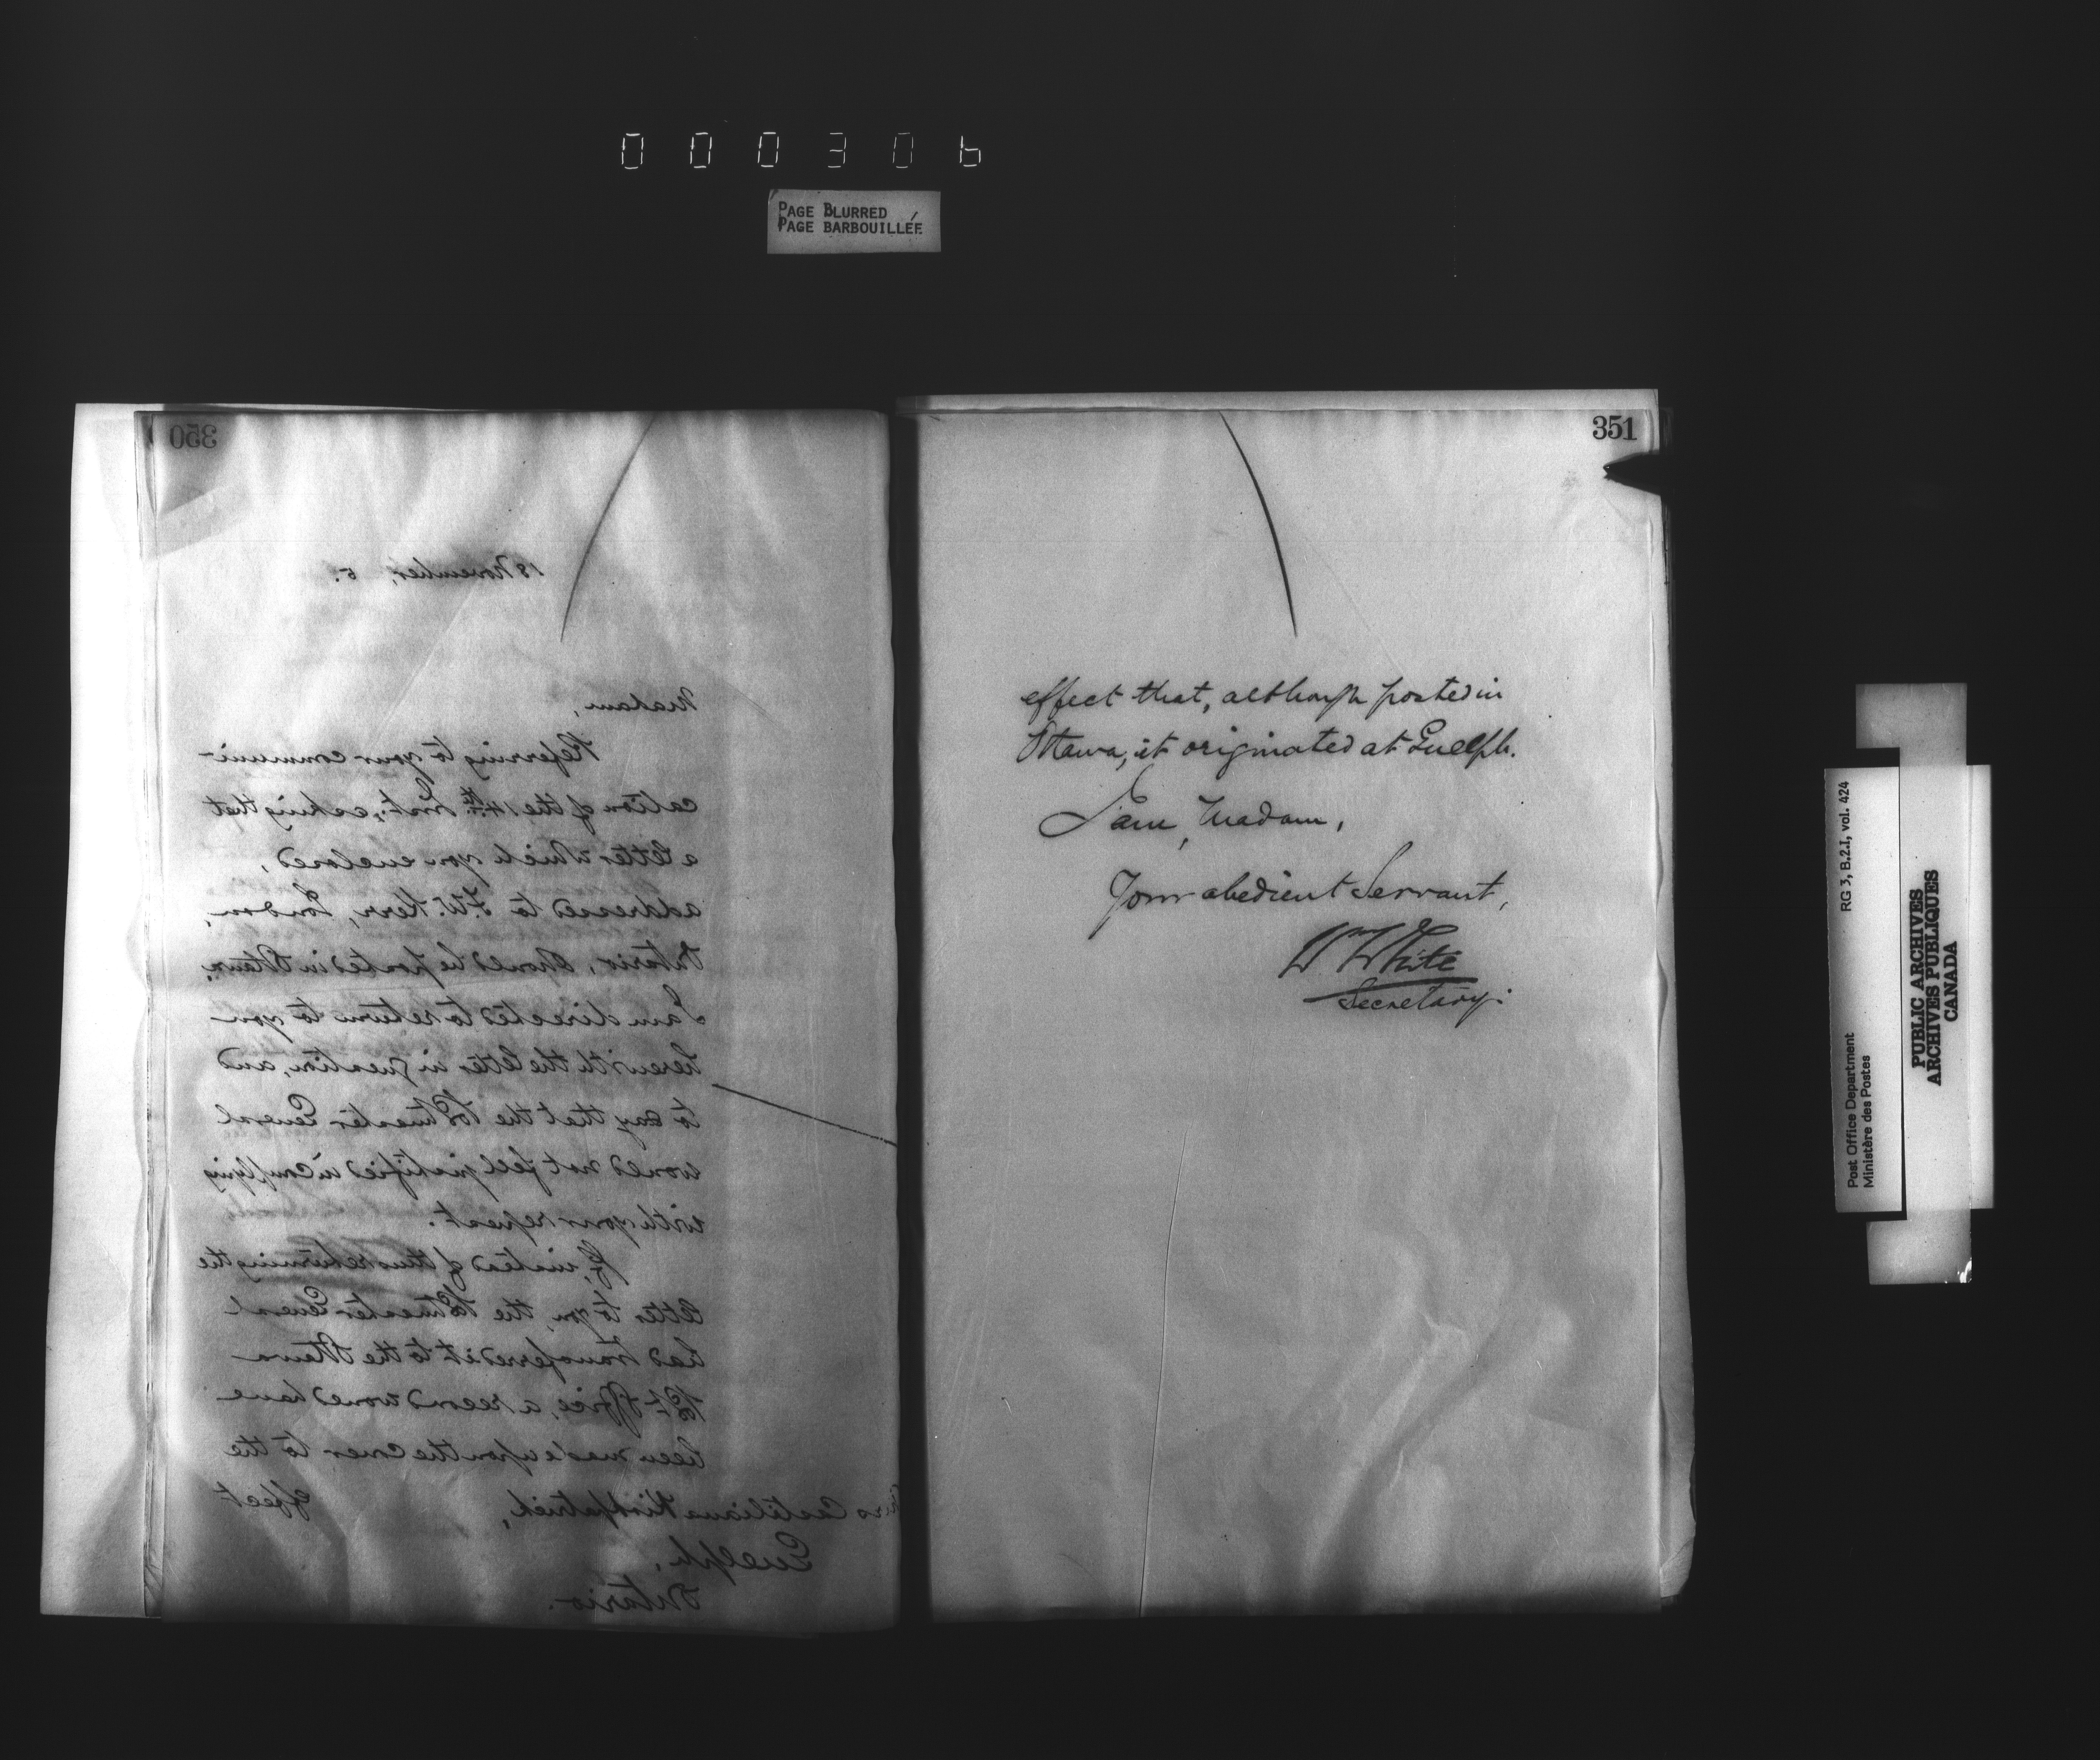 000306
PAGE BLURRED
PAGE BARBOUILLÉE
350
18 November, 5.
Madam,
Referring to your communi-
cation of the 14th Inst., asking that
a letter which you enclosed,
addressed to F.W. Kerr, London,
Ontario, should be posted in Ottawa,
I am directed to return to you
herewith the letter in question, and
to say that the Postmaster General
would not feel justified in complying
with your request.
If, instead of thus returning the
letter to you, the Postmaster General
had transferred it to the Ottawa
Post Office, a record would have
been made upon the cover to the
effect
Castiliana Kirkpatrick,
Guelph,
Ontario.
351
effect that, although posted in
Ottawa, it originated at Guelph.
I am, Madam,
Your obedient Servant,
Wm White
Secretary.
RG 3, B.2.I, vol. 424
Post Office Department
Ministère des Postes
PUBLIC ARCHIVES
ARCHIVES PUBLIQUES
CANADA